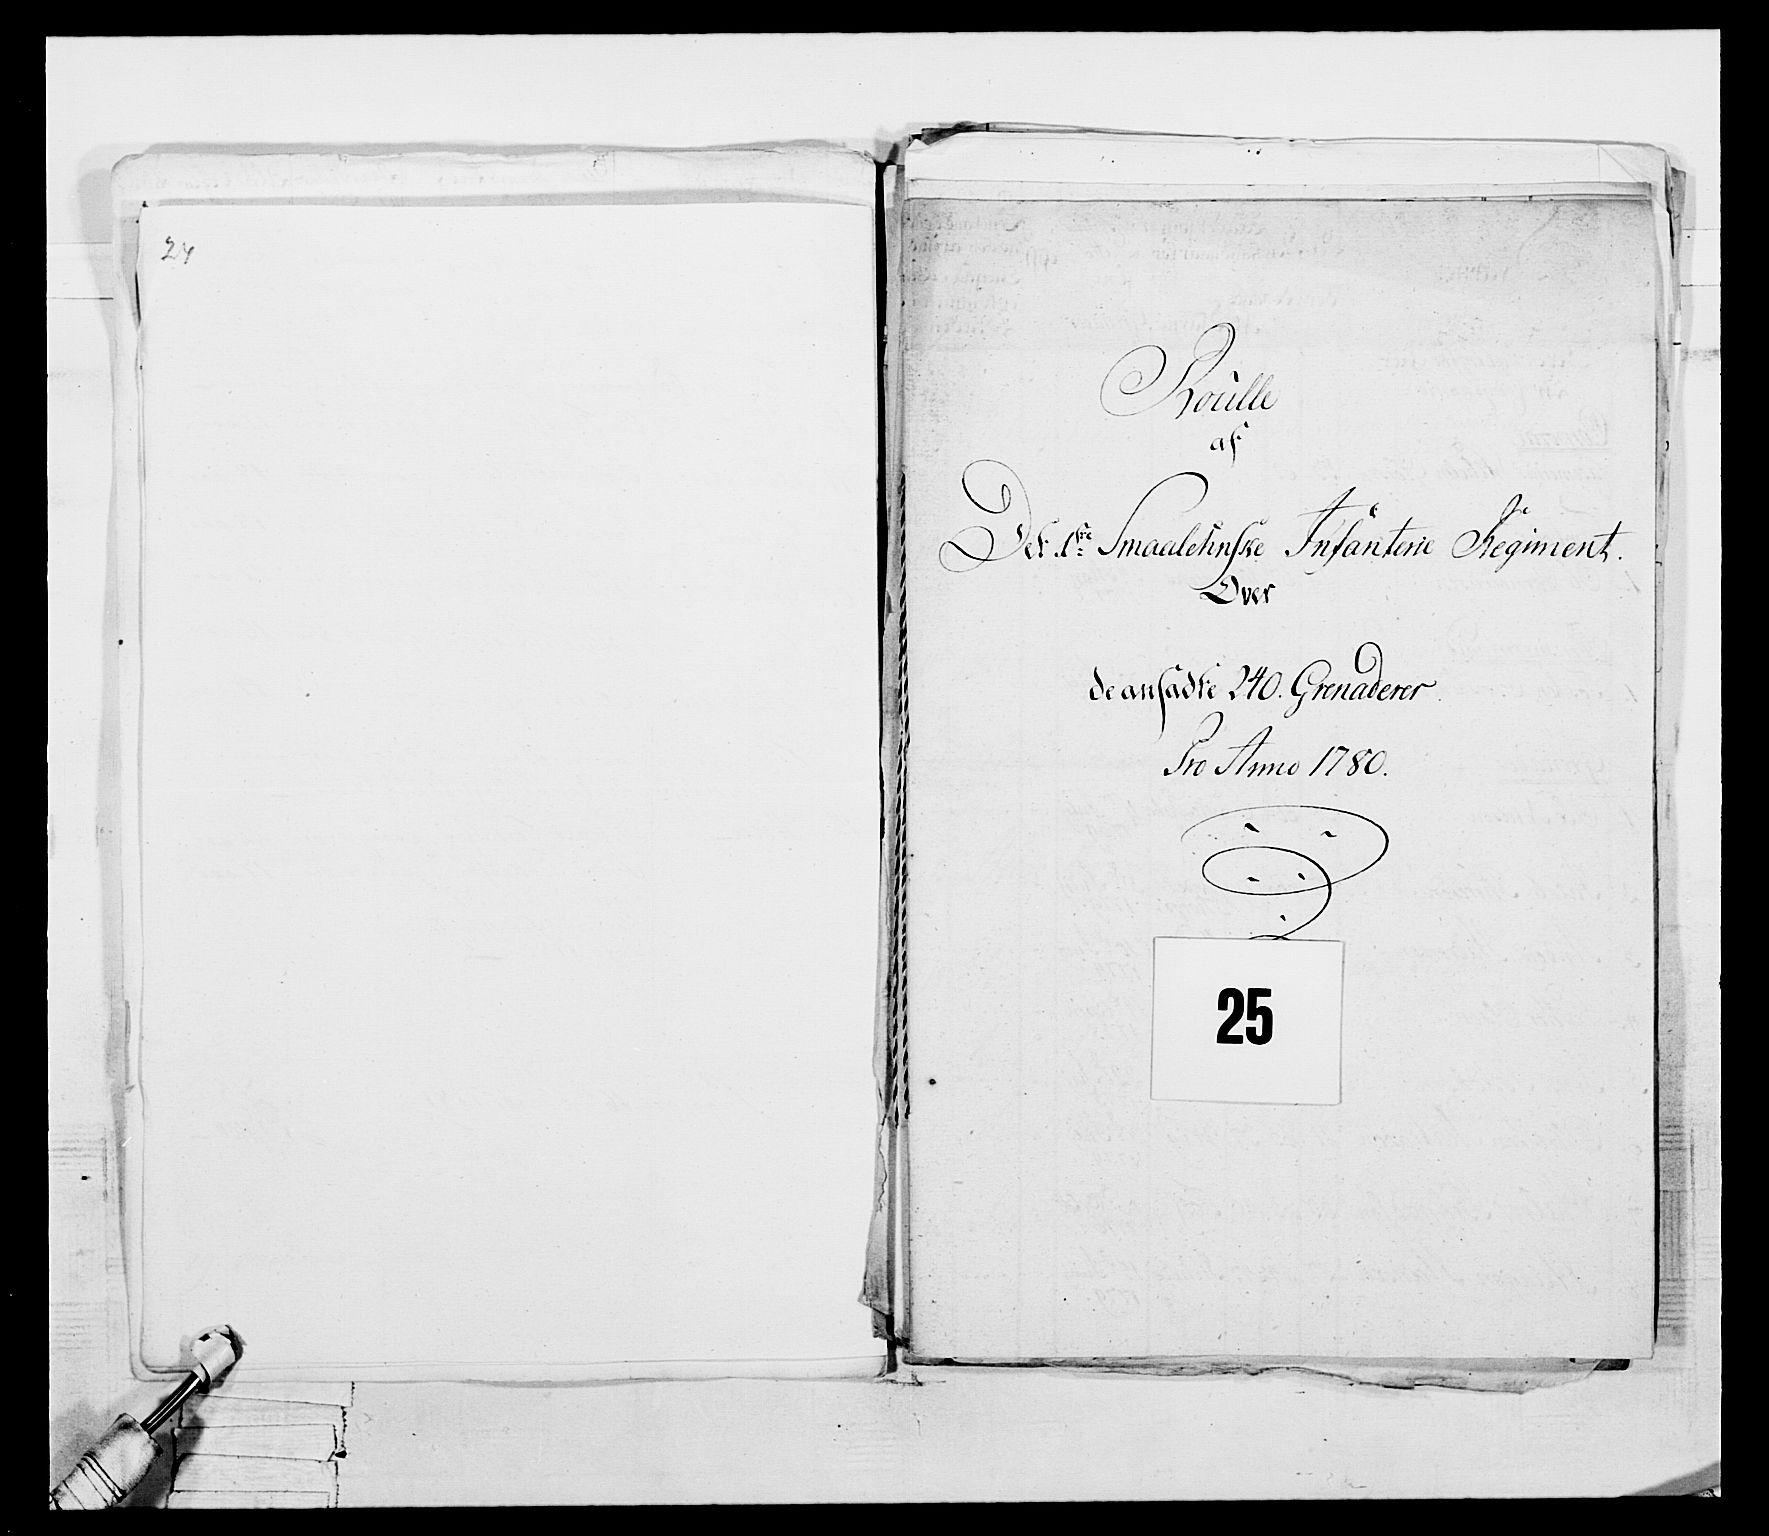 24
Roulle
af
Det 1ste Smaalehnske Infanterie Regiment.
Over
de ansadte 240. Grenaderer
Pro Anno 1780.
25